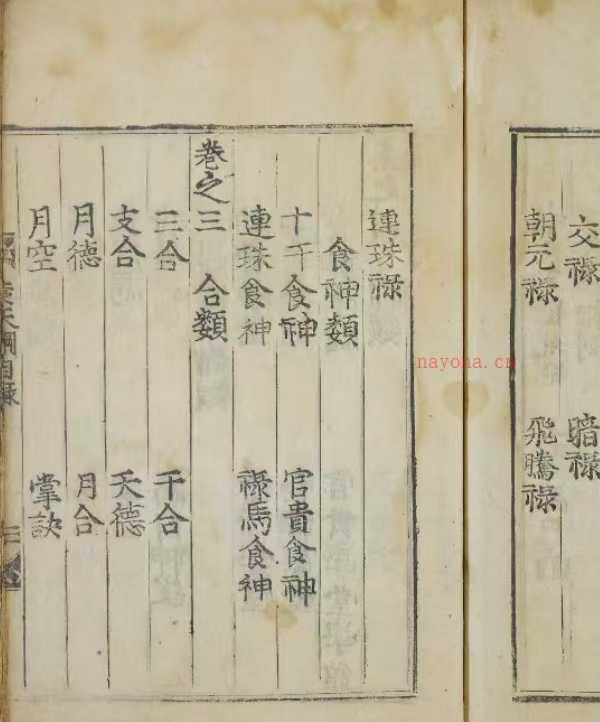 交祿 暗祿
朝元祿 飛騰祿
連珠祿
食神類
十干食神 官貴食神
連珠食神 祿馬食神
卷之三 合類
三合 干合
支合 天德
月德 月合
月空 掌訣
nayona.cn